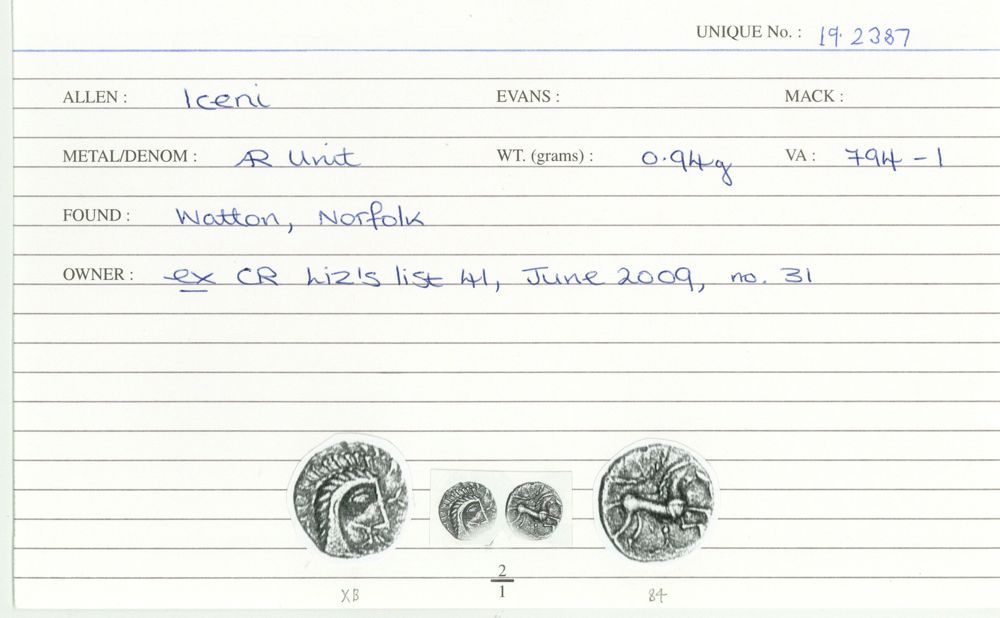 UNIQUE No. : 19.2387
ALLEN : Iceni EVANS : MACK :
METAL/DENOM : AR Unit WT. (grams) : 0.94g VA : 794-1
FOUND : Watton, Norfolk
OWNER : ex CR Liz's list 41, June 2009, no. 31
2
1
XB 84